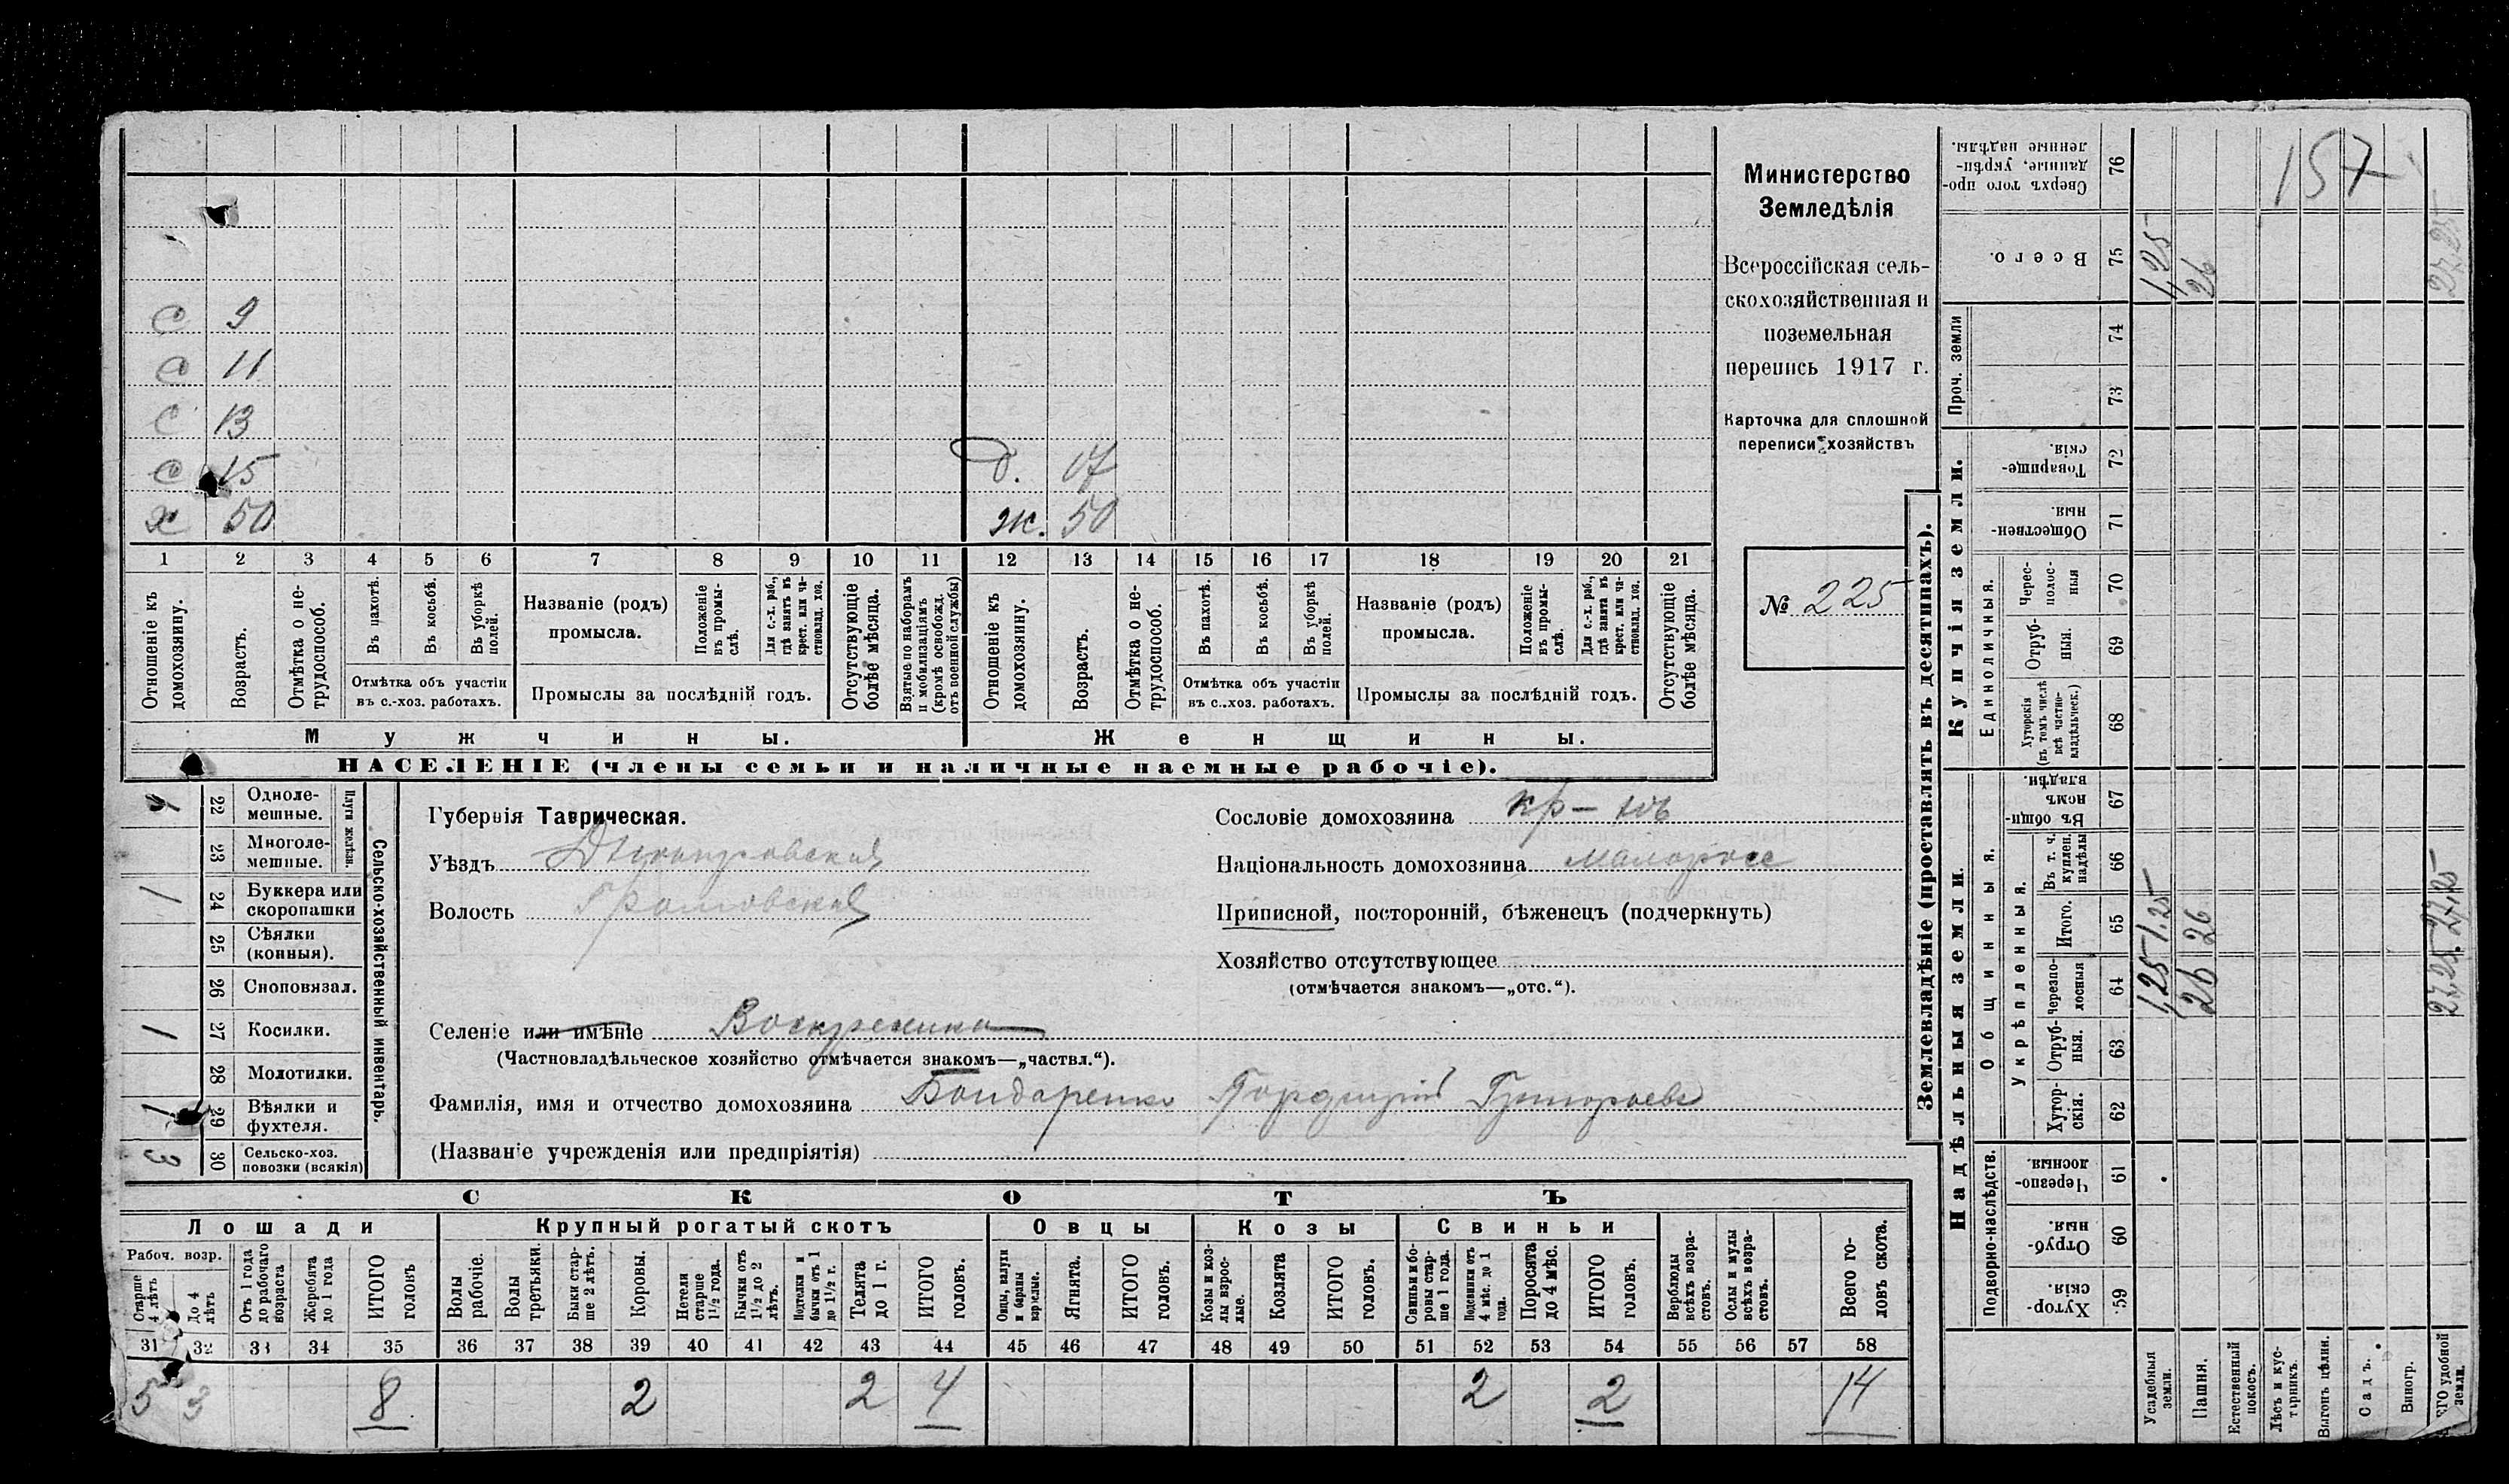 157
Министерство
Земледѣлія
Всероссійская сель-
скохозяйственная и
поземельная
перепись 1917 г.
Карточка для сплошной
переписи хозяйствъ
№ 225
С 9
С 11
С 13
С 15 д. 17
х 50 ж. 50
1 2 3 4 5 6 7 8 9 10 11 12 13 14 15 16 17 18 19 20 21
Отношеніе къ домохозяину.
Возрастъ.
Отмѣтка о не-трудоспособ.
Въ пахотѣ.
Въ косьбѣ.
Въ уборкѣ полей.
Отмѣтка объ участіи
въ с.-хоз. работахъ.
Названіе (родъ)
промысла.
Положеніе въ промы-слѣ.
Для с.-х. раб., гдѣ занятъ въ крест. или ча-стновлад. хоз.
Промыслы за послѣдній годъ.
Отсутствующіе болѣе мѣсяца.
Взятые по наборамъ и мобилизаціямъ (кромѣ освобожд. отъ военной службы)
Отношеніе къ домохозяину.
Возрастъ.
Отмѣтка о не-трудоспособ.
Въ пахотѣ.
Въ косьбѣ.
Въ уборкѣ полей.
Отмѣтка объ участіи
въ с..хоз. работахъ.
Названіе (родъ)
промысла.
Положеніе въ промы-слѣ.
Для с.-х. раб., гдѣ занята въ крест. или ча-стновлад. хоз.
Промыслы за послѣдній годъ.
Отсутствующіе болѣе мѣсяца.
Мужчины. Женщины.
НАСЕЛЕНІЕ (члены семьи и наличные наемные рабочіе).
Сельско-хозяйственный инвентарь.
Плуги желѣзн.
22 Одноле-мешные.
23 Многоле-мешные.
1 24 Буккера или скоропашки
25 Сѣялки (конныя).
26 Сноповязал.
1 27 Косилки.
28 Молотилки.
1 29 Вѣялки и фухтеля.
3 30 Сельско-хоз. повозки (всякія)
Губернія Таврическая.
Уѣздъ Днѣпровскій
Волость Громовская
Селеніе или имѣніе Воскресенка
(Частновладѣльческое хозяйство отмѣчается знакомъ—„частвл.“).
Фамилія, имя и отчество домохозяина Бондаренко Гордѣй Григорьевъ
(Названіе учрежденія или предпріятія)
Сословіе домохозяина кр-нъ
Національность домохозяина малоросс
Приписной, посторонній, бѣженецъ (подчеркнуть)
Хозяйство отсутствующее
(отмѣчается знакомъ—„отс.“).
СКОТЪ
Лошади Крупный рогатый скотъ Овцы Козы Свиньи
Рабоч. возр.
Старше 4 лѣтъ
До 4 лѣтъ
Отъ 1 года до рабочаго возраста
Жеребята до 1 года
ИТОГО головъ
Волы рабочіе.
Волы третьяки.
Быки стар-ше 2 лѣтъ.
Коровы.
Нетели старше 1½ года.
Бычки отъ 1½ до 2 лѣтъ.
Подтелки и бычки отъ 1 до 1½ г.
Телята до 1 г.
ИТОГО головъ.
Овцы, валухи и бараны взрослые.
Ягнята.
ИТОГО головъ.
Козы и коз-лы взрос-лые.
Козлята
ИТОГО головъ.
Свиньи и бо-ровы стар-ше 1 года.
Подсвинки отъ 4 мѣс. до 1 года.
Поросята до 4 мѣс.
ИТОГО головъ.
Верблюды всѣхъ возра-стовъ.
Ослы и мулы всѣхъ возра-стовъ.
Всего го-ловъ скота.
31 32 33 34 35 36 37 38 39 40 41 42 43 44 45 46 47 48 49 50 51 52 53 54 55 56 57 58
5 3 8 2 2 4 2 2 14
Землевладѣніе (проставлять въ десятинахъ).
Надѣльныя земли. Купчія земли. Проч. земли
Подворно-наслѣдств.
Общинныя.
Укрѣпленныя.
Единоличныя.
Хутор-скія. 59
Отруб-ныя. 60
Черезпо-лосныя. 61
Хутор-скія. 62
Отруб-ныя. 63
Черезпо-лосныя 64
Итого. 65
Въ т. ч. куплен. надѣлы 66
Въ общин-номъ владѣн. 67
Хуторскія (въ томъ числѣ всѣ частно-владѣльческ.) 68
Отруб-ныя. 69
Черес-полос-ныя 70
Обществен-ныя. 71
Товарище-скія. 72
73
74
Всего. 75
Сверхъ того про-данные, укрѣп-ленные надѣлы. 76
Усадебныя земли. 1,25 1,25 1,25
Пашня. 26 26 26
Естественный покосъ.
Лѣсъ и кус-тарникъ.
Выгонъ цѣлин.
Садъ.
Виногр.
удобной земли. 27,25 27,25 27,25